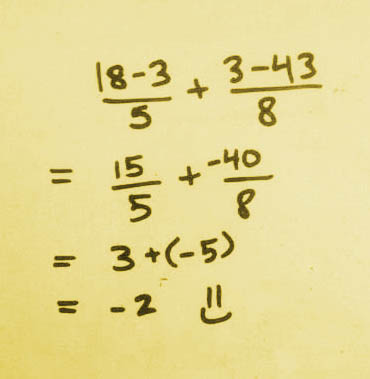 18-3/5 + 3-43/8
= 15/5 + -40/8
= 3+(-5)
= -2